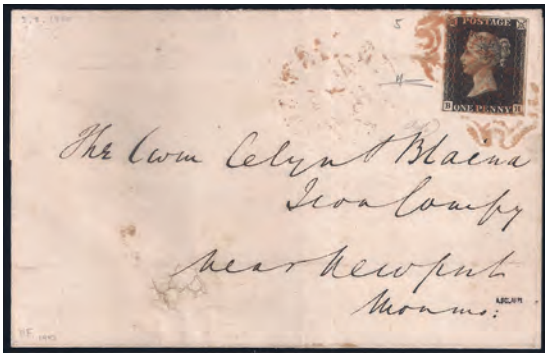 POSTAGE
ONE PENNY
5
The Cwm Celyn & Blaena
Iron Compy
near Newport
Monmo: